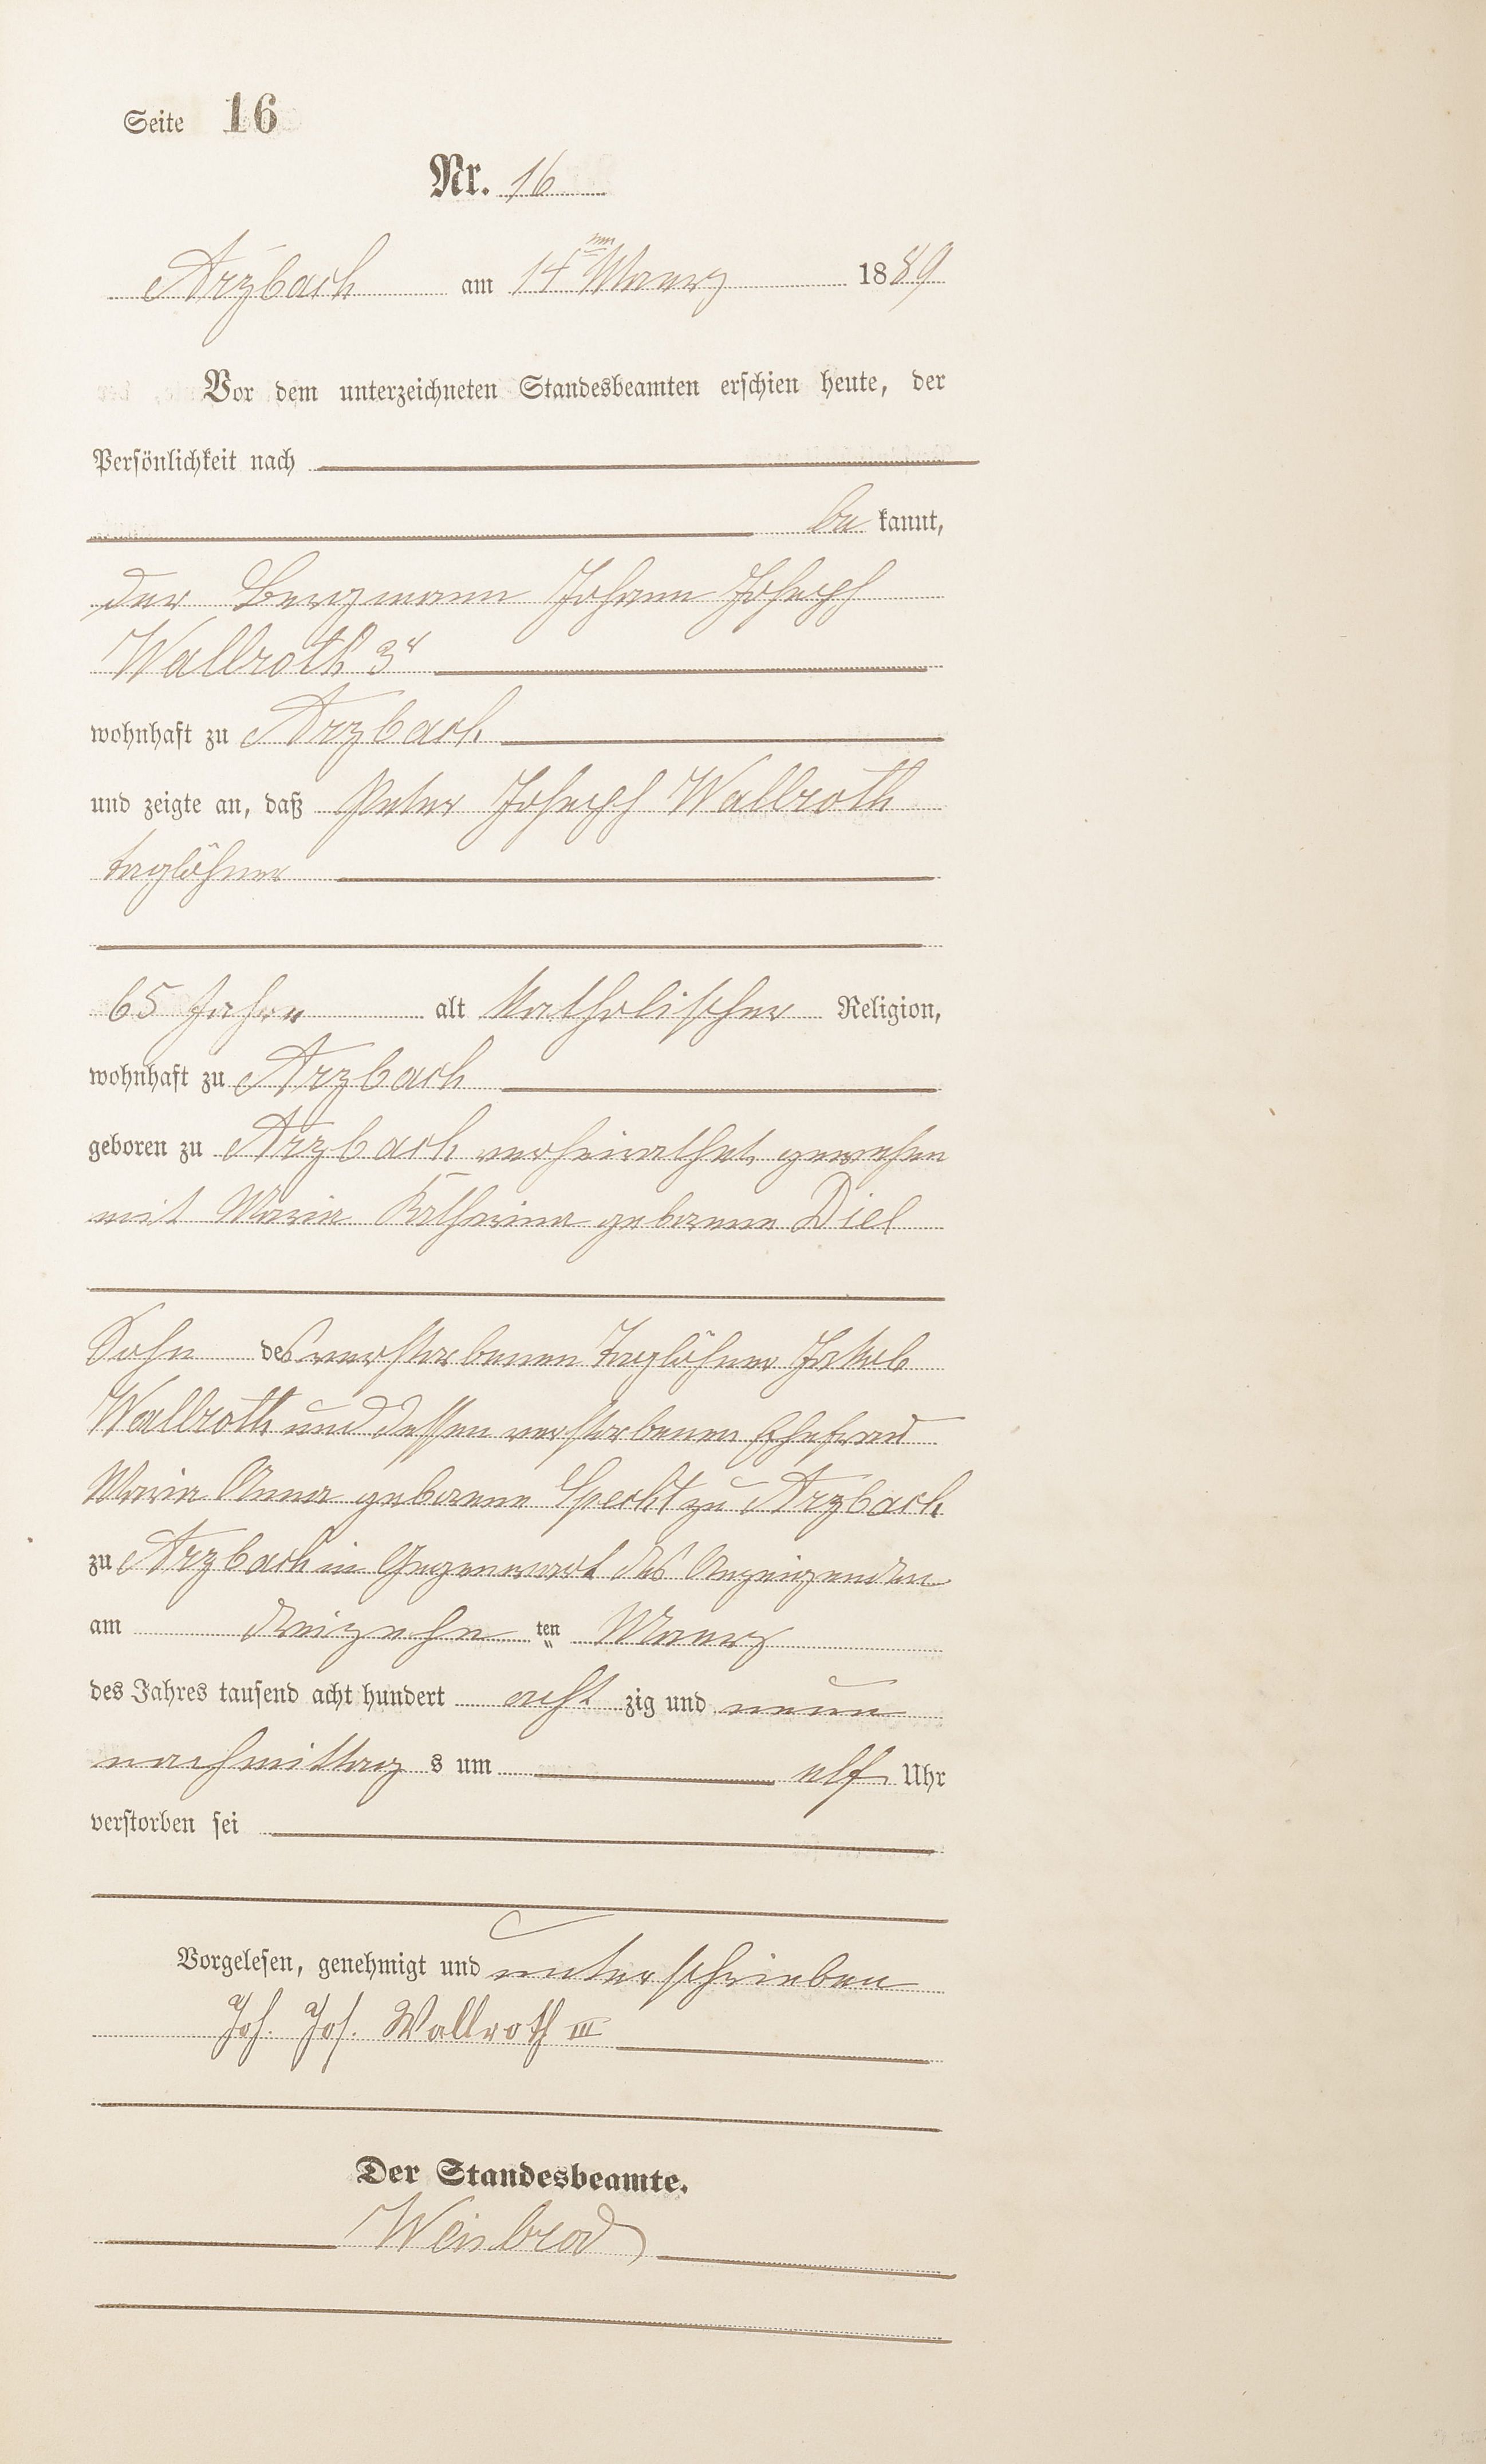 Seite 16
Nr. 16
Arzbach am 14ten Maerz 1889
Vor dem unterzeichneten Standesbeamten erschien heute, der
Persönlichkeit nach
be kannt,
der Bergmann Johann Joseph
Wallroth 3r
wohnhaft zu Arzbach
und zeigte an, daß Peter Joseph Wallroth
Taglöhner
65 Jahre alt Katholischer Religion,
wohnhaft zu Arzbach
geboren zu Arzbach verheirathet gewesen
mit Maria Katharina geborene Diel
Sohn des verstorbenen Taglöhner Jakob
Wallroth und dessen verstorbenen Ehefrau
Maria Anna geborene Specht zu Arzbach
zu Arzbach in Gegenwart des Anzeigenden
am dreizehn ten Maerz
des Jahres tausend acht hundert acht zig und neun
nachmittag s um elf Uhr
verstorben sei
Vorgelesen, genehmigt und unterschrieben
Joh. Jos. Wallroth III
Der Standesbeamte.
Weisbrod